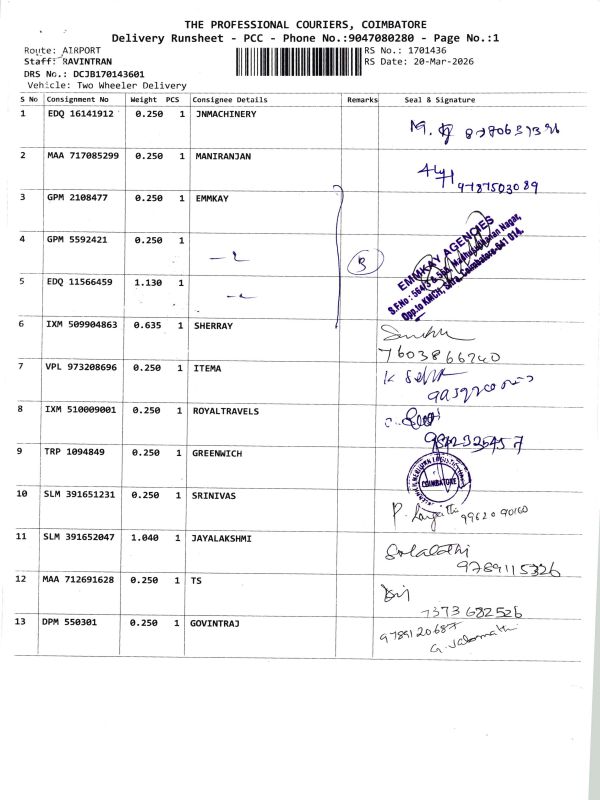 THE PROFESSIONAL COURIERS, COIMBATORE
Delivery Runsheet - PCC - Phone No.:9047080280 - Page No.:1
Route: AIRPORT RS No.: 1701436
Staff: RAVINTRAN RS Date: 20-Mar-2026
DRS No.: DCJB170143601
Vehicle: Two Wheeler Delivery
S No Consignment No Weight PCS Consignee Details Remarks Seal & Signature
1 EDQ 16141912 0.250 1 JNMACHINERY
2 MAA 717085299 0.250 1 MANIRANJAN
9787503089
3 GPM 2108477 0.250 1 EMMKAY
4 GPM 5592421 0.250 1
3
EMMKAY AGENCIES
Opp.to KMCH,
5 EDQ 11566459 1.130 1
6 IXM 509904863 0.635 1 SHERRAY
7603866240
7 VPL 973208696 0.250 1 ITEMA
8 IXM 510009001 0.250 1 ROYALTRAVELS
9 TRP 1094849 0.250 1 GREENWICH
COIMBATORE
10 SLM 391651231 0.250 1 SRINIVAS
9962090160
11 SLM 391652047 1.040 1 JAYALAKSHMI
9789115326
12 MAA 712691628 0.250 1 TS
7373682526
13 DPM 550301 0.250 1 GOVINTRAJ
9789120687